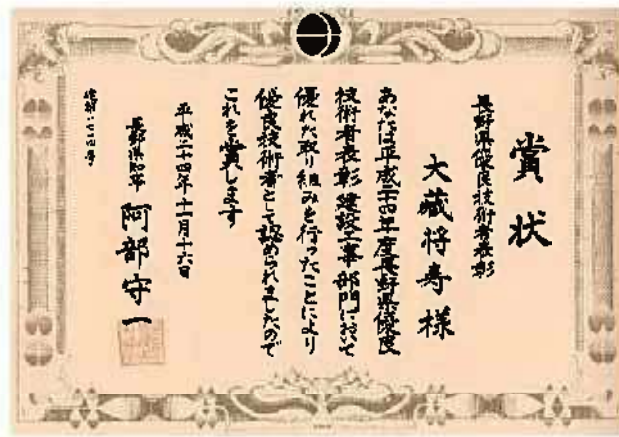 賞状
長野県優良技術者表彰
大蔵将寿様
あなたは平成二十四年度長野県優良
技術者表彰建設工事部門において
優れた取り組みを行ったことにより
優良技術者として認められましたので
これを賞します
平成二十四年十一月十六日
長野県知事
阿部守一